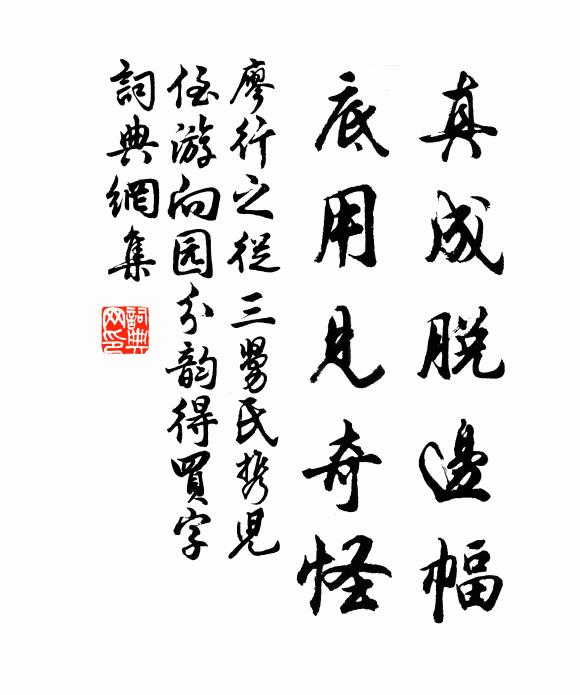 真成脱邊幅
底用見奇怪
廖行之從三舅氏携児
侄游向园分韵得買字
詞典網集
詞典网印